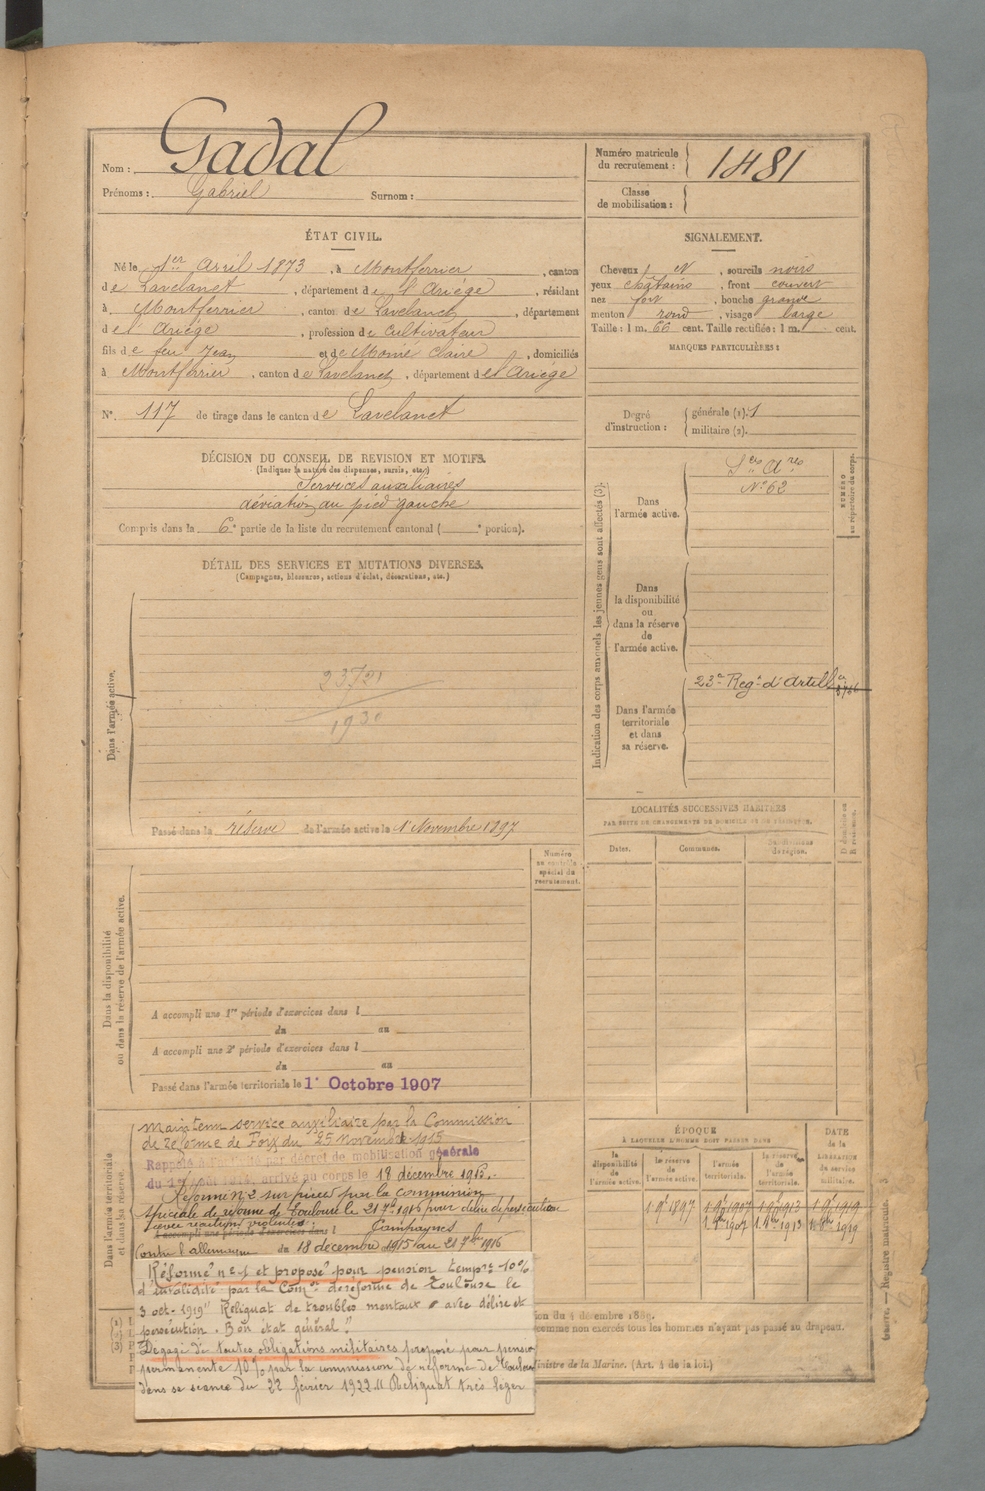 Nom : Gadal
Prénoms : Gabriel Surnom :
Numéro matricule du recrutement : 1481
Classe de mobilisation :
ÉTAT CIVIL.
Né le 1er Avril 1873, à Montferrier, canton
de Lavelanet, département de l'Ariège, résidant
à Montferrier, canton de Lavelanet, département
de l'Ariège, profession de Cultivateur
fils de feu Jean et de Momé Claire, domiciliés
à Montferrier, canton de Lavelanet, département de l'Ariège
N° 117 de tirage dans le canton de Lavelanet
SIGNALEMENT.
Cheveux N, sourcils noirs
yeux châtains, front couvert
nez fort, bouche grande
menton rond, visage large
Taille : 1 m. 66 cent. Taille rectifiée : 1 m. cent.
MARQUES PARTICULIÈRES :
Degré d'instruction : générale (2). 1
militaire (2).
DÉCISION DU CONSEIL DE REVISION ET MOTIFS.
(Indiquer la nature des dispenses, sursis, etc.)
Services auxiliaires
déviation du pied gauche
Compris dans la 6e partie de la liste du recrutement cantonal ( e portion).
DÉTAIL DES SERVICES ET MUTATIONS DIVERSES.
(Campagnes, blessures, actions d'éclat, décorations, etc.)
Dans l'armée active.
1930
Passé dans la réserve de l'armée active le 1er Novembre 1897
Indication des corps auxquels les jeunes gens sont affectés (3).
NUMÉRO au répertoire du corps.
Dans l'armée active.
Ses Ares
N° 62
Dans la disponibilité ou dans la réserve de l'armée active.
Dans l'armée territoriale et dans sa réserve.
23e Regt d'Artillie
LOCALITÉS SUCCESSIVES HABITÉES
PAR SUITE DE CHANGEMENTS DE DOMICILE OU DE RÉSIDENCE.
Dates. Communes. Subdivisions de région. D. domicile ou R. résidence.
Numéro au contrôle spécial du recrutement.
Dans la disponibilité ou dans la réserve de l'armée active.
A accompli une 1re période d'exercices dans l
du au
A accompli une 2e période d'exercices dans l
du au
Passé dans l'armée territoriale le 1er Octobre 1907
Dans l'armée territoriale et dans sa réserve.
maintenu service auxiliaire par la Commission
de réforme de Foix du 25 novembre 1915
Rappelé à l'activité par décret de mobilisation générale
du 1er Août 1914, arrivé au corps le 18 décembre 1915.
Réformé n° 2 sur pièces par la commission
spéciale de réforme de Toulouse le 21 7bre 1916 pour délire de persécution
avec réactions violentes.
A accompli une période d'exercices dans l
Campagnes
Contre l'allemagne du 18 décembre 1915 au 21 7bre 1916
Réformé n° 1 et proposé pour pension tempre 10%
d'invalidité par la Comon de réforme de Toulouse le
3 oct. 1919 "Reliquat de troubles mentaux avec délire et
persécution. Bon état général."
Dégagé de toutes obligations militaires proposé pour pension
permanente 10% par la commission de réforme de Toulouse
dans sa séance du 22 février 1922 "Reliquat très léger
ÉPOQUE
À LAQUELLE L'HOMME DOIT PASSER DANS
DATE de la LIBÉRATION du service militaire.
la disponibilité de l'armée active. la réserve de l'armée active. l'armée territoriale. la réserve de l'armée territoriale.
1er 9bre 1897 1 9bre 1907 1 9bre 1913 1 9bre 1919
1 8bre 1907 1 8bre 1913 1 8bre 1919
décembre 1889.
comme non exercés tous les hommes n'ayant pas passé au drapeau.
Ministre de la Marine. (Art. 4 de la loi.)
Guerre. — Registre matricule. 3